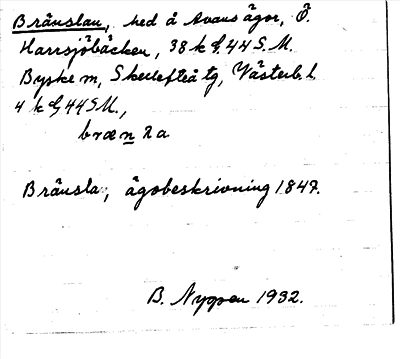 Bränslan, hed å Avans ägor, Ö.
Harrsjöbäcken, 38 k & 44 S.M.
Byske m, Skellefteå tg, Västerb. l.
4 k & 44 S.M.,
bræn λ a
Bränsla, ägobeskrivning 1847.
B. Nygren 1932.